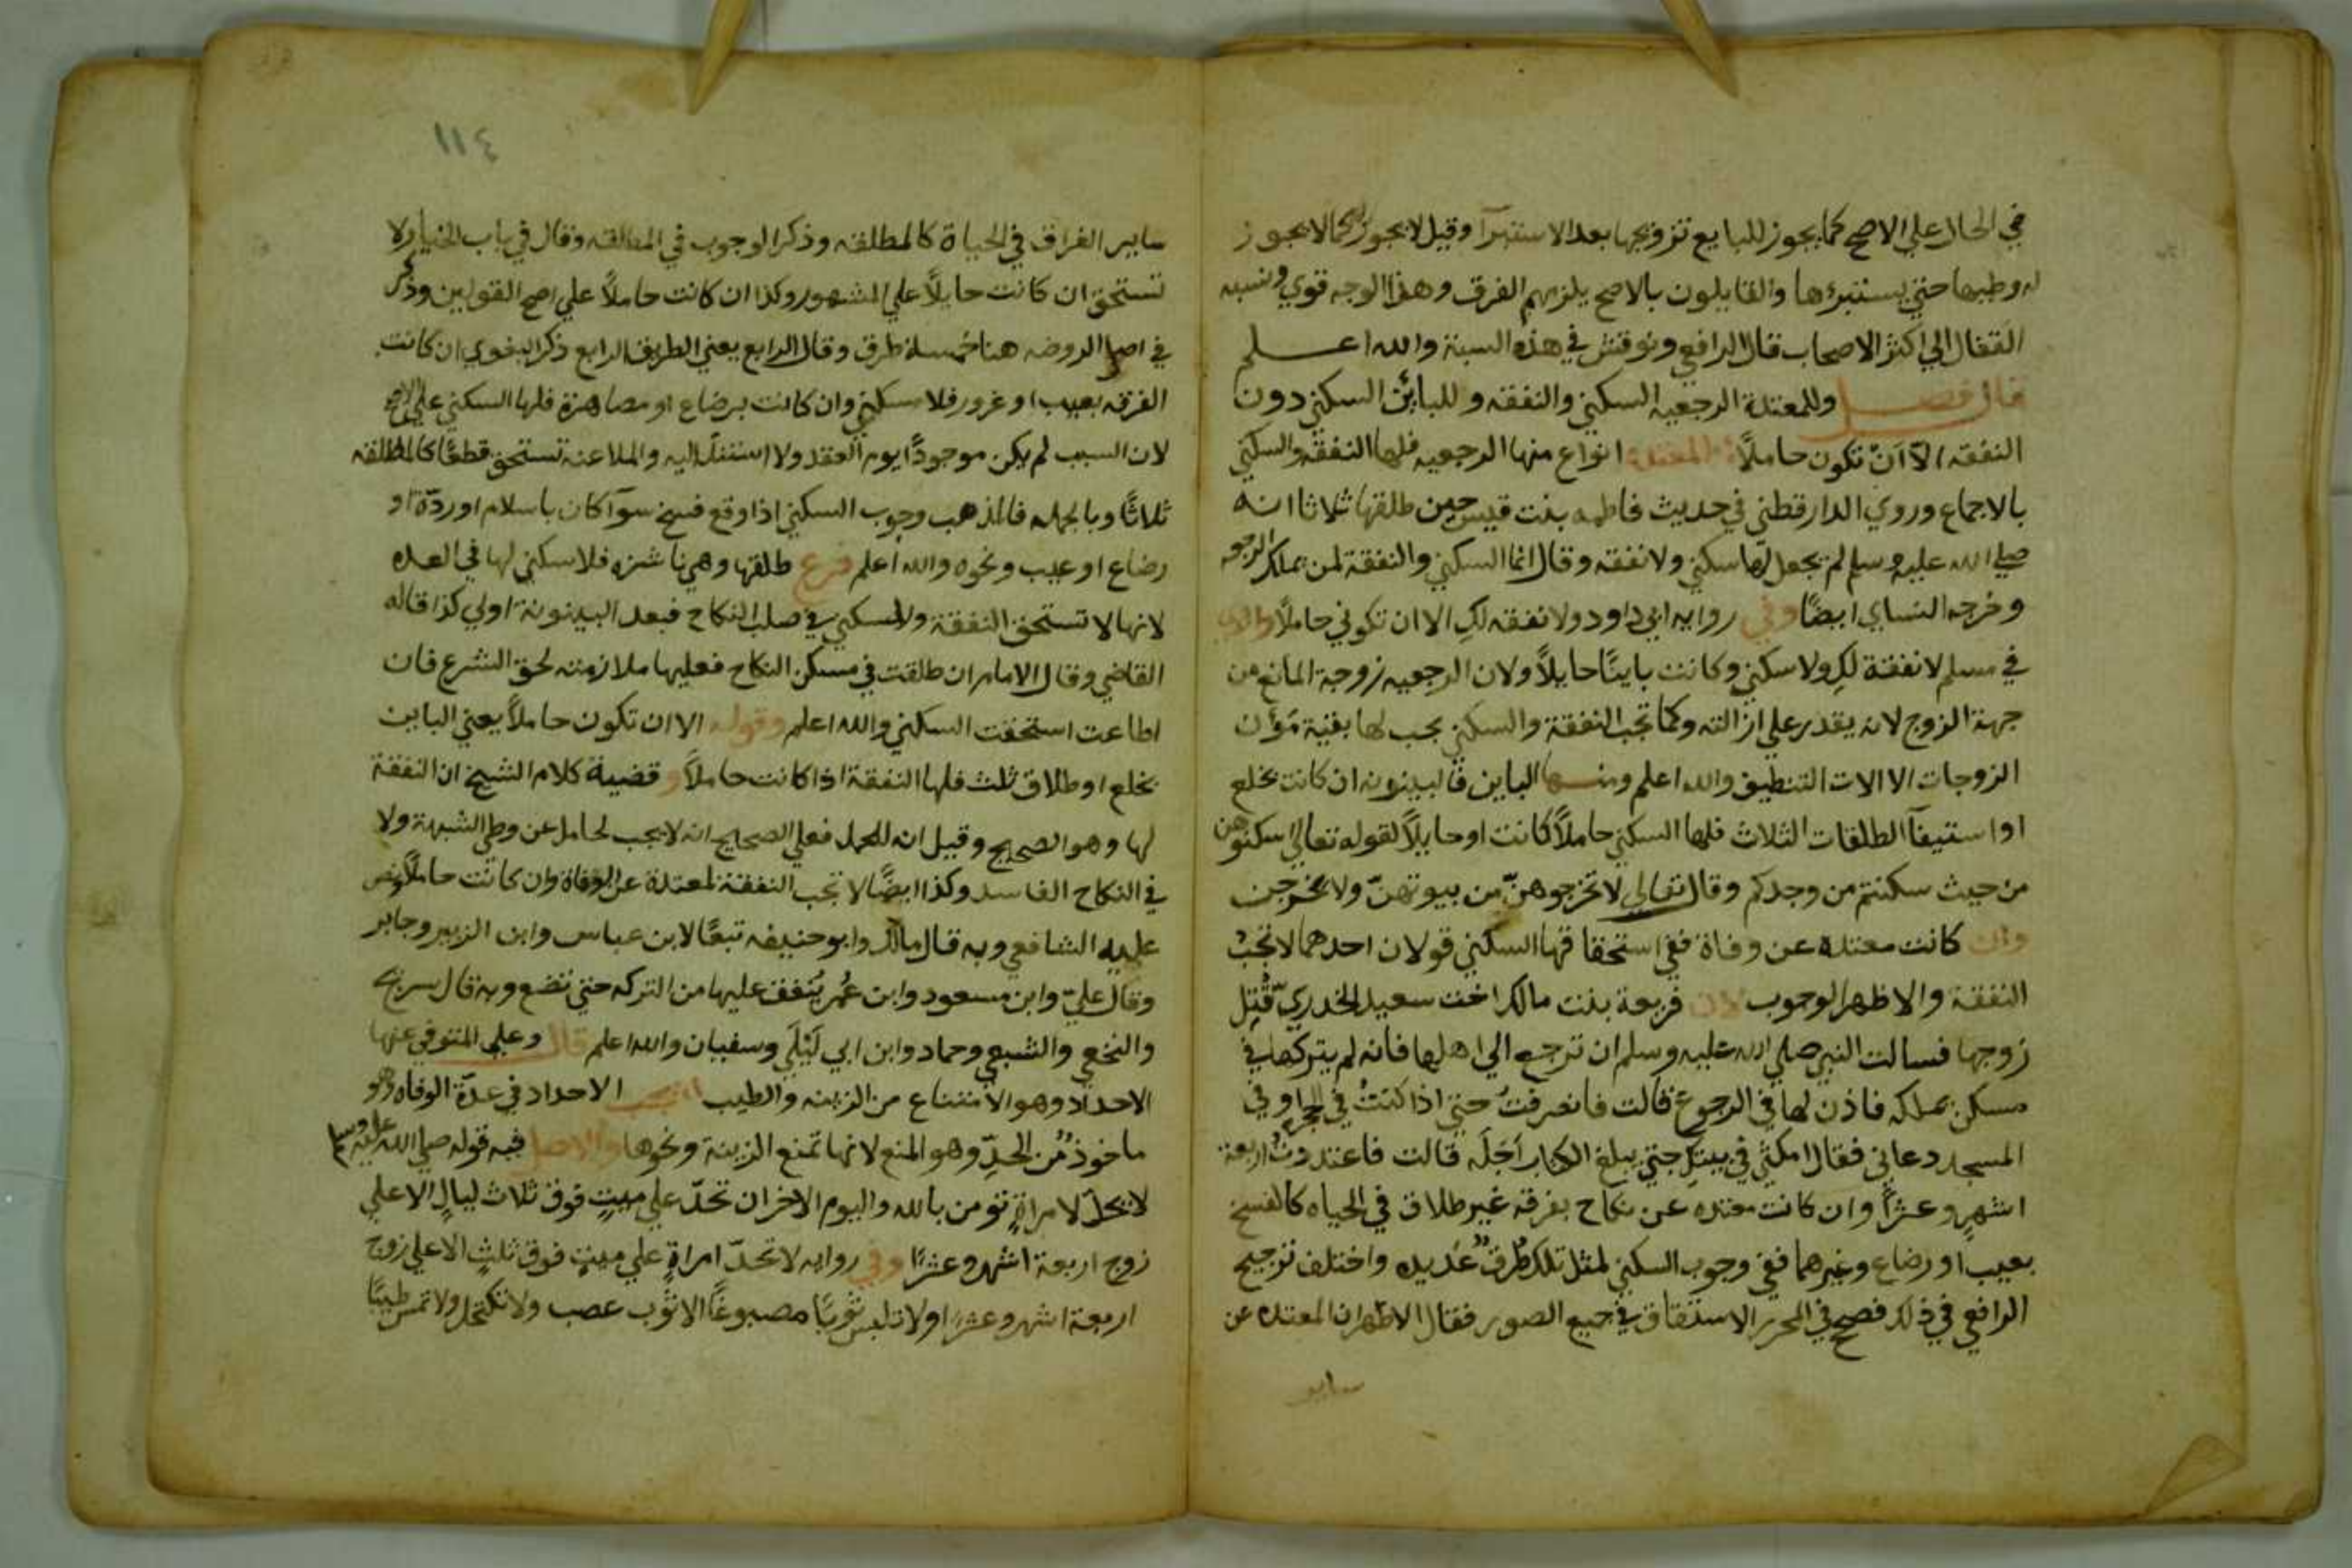 في الحال علي الاصح كما يجوز للبايع تزويجها بعد الاستبرآ وقيل لا يجوز كما لا يجوز
له وطيها حتي يستبرءها والقايلون بالاصح يلزمهم الفرق وهذا الوجه قوي ونسبه
القفال الي اكثر الاصحاب قال الرافعي ونوقش في هذه النسبة والله اعلم
قال فصل وللمعتدة الرجعيه السكني والنفقه وللبائن السكني دون
النفقه الآ انّ تكون حاملاً المعتدة انواع منها الرجعيه فلها النفقه والسكني
بالاجماع وروي الدارقطني في حديث فاطمه بنت قيس حين طلقها ثلاثا انه
صلي الله عليه وسلم لم يجعل لها سكني ولا نفقه وقال انما السكني والنفقة لمن يملك الرجعه
وخرجه النساي ايضًا وفي روايه ابي داود ولا نفقه لكِ الا ان تكوني حاملاً والذي
في مسلم لا نفقة لكِ ولا سكني وكانت باينًا حايلاً ولان الرجعيه زوجة المانع من
جهة الزوج لانه يقدر علي ازالته وكما تجب النفقة والسكني يجب لها بقية مؤن
الزوجات الا الات التنظيف والله اعلم ومنها الباين فالبينونه ان كانت بخلع
او استيفآ الطلقات الثلاث فلها السكني حاملاً كانت او حايلاً لقوله تعالي اسكنوهن
من حيث سكنتم من وجدكم وقال تعالي لا تخرجوهنّ من بيوتهنّ ولا يخرجن
وان كانت معتده عن وفاة ففي استحقاقها السكني قولان احدهما لا تجب
النفقة والاظهر الوجوب لان فريعة بنت مالك اخت سعيد الخدريّ قُتِل
زوجها فسالت النبي صلي الله عليه وسلم ان ترجع الي اهلها فانه لم يتركها في
مسكن يملكه فاذن لها في الرجوع قالت فانصرفتُ حتي اذا كنتُ في الحجرة او في
المسجد دعاني فقال امكثي في بيتكِ حتي يبلغ الكتاب اَجَلَه قالت فاعتددتُ اربعة
اشهرٍ وعشرًا وان كانت معتده عن نكاح بفرقه غير طلاق في الحياه كالفسخ
بعيب او رضاع وغيرهما ففي وجوب السكني لمثل تلك طُرقٌ عديده واختلف ترجيح
الرافعي في ذلك فصحح في المحرر الاستحقاق في جميع الصور فقال الاظهر ان المعتده عن
ساير
١١٤
ساير الفراق في الحياة كالمطلقه وذكر الوجوب في المطلقه وقال في باب الخيار ولا
تستحق ان كانت حايلاً علي المشهور وكذا ان كانت حاملاً علي اصح القولين وذكر
في اصل الروضه هنا خمسة طرق وقال الرابع يعني الطريق الرابع ذكر البغوي ان كانت
الفرقه بعيب او غرور فلا سكني وان كانت برضاع او مصاهرة فلها السكني علي الاصح
لان السبب لم يكن موجودًا يوم العقد ولا استند اليه والملاعنة تستحق قطعًا كالمطلقه
ثلاثًا وبالجمله فالمذهب وجوب السكني اذا وقع فسخ سوآ كان باسلام او ردّة او
رضاع او عيب ونحوه والله اعلم فرع طلقها وهي ناشزه فلا سكني لها في العده
لانها لا تستحق النفقة ولا السكني في صلب النكاح فبعد البينونة اولي كذا قاله
القاضي وقال الامام ان طلقت في مسكن النكاح فعليها ملازمته لحق الشرع فان
اطاعت استحقت السكني والله اعلم وقوله الا ان تكون حاملاً يعني الباين
بخلع او طلاق ثلث فلها النفقة اذا كانت حاملاً و قضية كلام الشيخ ان النفقة
لها وهو الصحيح وقيل انه للحمل فعلي الصحيح انه لا يجب لحامل عن وطي الشبهة ولا
في النكاح الفاسد وكذا ايضًا لا تجب النفقة لمعتدة عن الوفاة وان كانت حاملاً ونص
عليه الشافعي وبه قال مالك وابو حنيفه تبعًا لابن عباس وابن الزبير وجابر
وقال عليّ وابن مسعود وابن عُمر يُنفق عليها من التركه حتي تضع وبه قال سريح
والنخعي والشبعي وحماد وابن ابي لَيْلَي وسفيان والله اعلم قال وعلي المتوفي عنها
الاحداد وهو الامتناع من الزينه والطيب يجب الاحداد في عدّة الوفاه وهو
ماخوذٌ من الحدِّ وهو المنع لانها تمنع الزينة ونحوها والاصل فيه قوله صلي الله عليه وسلم
لا يحلّ لامراةٍ تومن بالله واليوم الاخر ان تحدّ علي ميتٍ فوق ثلاث ليالٍ الا علي
زوج اربعة اشهر وعشرًا وفي روايه لا تحدّ امراةٍ علي ميتٍ فوق ثلثٍ الا علي زوج
اربعة اشهر وعشرًا ولا تلبس ثوبًا مصبوغًا الا ثوب عصب ولا تكتحل ولا تمس طيبًا